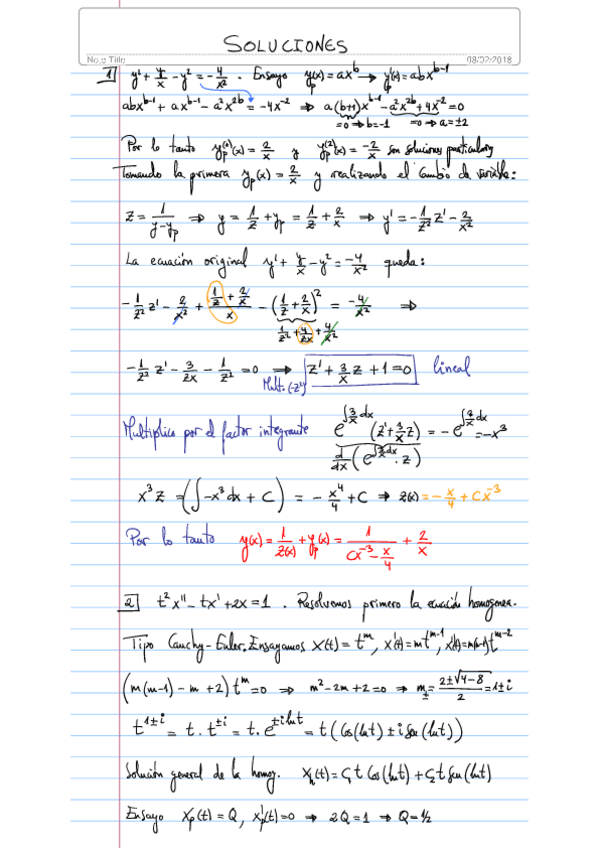 SOLUCIONES
No.e Title
08/02/2018
1 y' + y/x - y² = -4/x² . Ensayo y_p(x) = ax^b → y_p'(x) = abx^{b-1}
abx^{b-1} + ax^{b-1} - a²x^{2b} = -4x^{-2} ⇒ a(b+1)x^{b-1} - a²x^{2b} + 4x^{-2} = 0
=0 ⇒ b=-1 =0 ⇒ a=±2
Por lo tanto y_p^{(1)}(x) = 2/x y y_p^{(2)}(x) = -2/x son soluciones particulares
Tomando la primera y_p(x) = 2/x y realizando el cambio de variable:
z = 1/(y-y_p) ⇒ y = 1/z + y_p = 1/z + 2/x ⇒ y' = -1/z² z' - 2/x²
La ecuación original y' + y/x - y² = -4/x² queda:
-1/z² z' - 2/x² + (1/z + 2/x)/x - (1/z + 2/x)² = -4/x² ⇒
1/z² + 4/zx + 4/x²
-1/z² z' - 3/zx - 1/z² = 0 ⇒ z' + 3/x z + 1 = 0 lineal
Mult. (-z²)
Multiplico por el factor integrante e^{∫3/x dx} (z' + 3/x z) = -e^{∫3/x dx} = -x³
d/dx (e^{∫3/x dx} · z)
x³z = (∫-x³dx + C) = -x⁴/4 + C ⇒ z(x) = -x/4 + Cx^{-3}
Por lo tanto y(x) = 1/z(x) + y_p(x) = 1/(Cx^{-3} - x/4) + 2/x
2 t²x'' - tx' + 2x = 1 . Resolvemos primero la ecuación homogenea.
Tipo Cauchy-Euler. Ensayamos x(t) = t^m, x'(t) = mt^{m-1}, x''(t) = m(m-1)t^{m-2}
(m(m-1) - m + 2) t^m = 0 ⇒ m² - 2m + 2 = 0 ⇒ m_± = (2±√(4-8))/2 = 1±i
t^{1±i} = t · t^{±i} = t · e^{±i ln t} = t (Cos(ln t) ± i Sen(ln t))
Solución general de la homog. x_h(t) = C₁t Cos(ln t) + C₂t Sen(ln t)
Ensayo x_p(t) = Q, x_p'(t) = 0 ⇒ 2Q = 1 ⇒ Q = 1/2